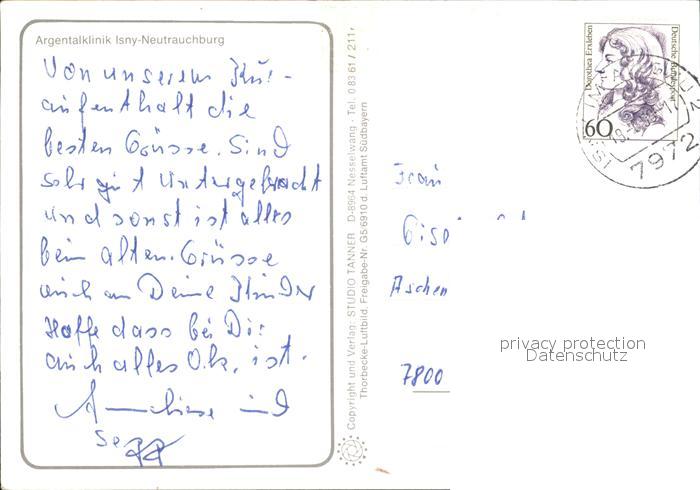 Argentalklinik Isny-Neutrauchburg
Von unserem Kur-
aufenthalt die
besten Grüsse. Sind
sehr gut untergebracht
und sonst ist alles
beim alten. Grüsse
auch an Deine Kinder
Hoffe dass bei Dir
auch alles O.k. ist.
und
Sepp
Copyright und Verlag: STUDIO TANNER D-8964 Nesselwang · Tel. 0 83 61 / 211
Thorbecke-Luftbild, Freigabe-Nr. G5/6910 d. Luftamt Südbayern
Dorothea Erxleben
Deutsche Bundespost
60
7972
Frau
Aschen
7800
privacy protection
Datenschutz